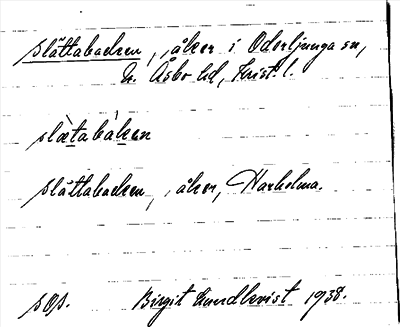 slättabacken, åker i Oderljunga sn,
N. Åsbo hd, Krist. l.
slæ̀tabákен
slättabacken, åker, Harholma.
sgs. Birgit Lundkvist 1938.